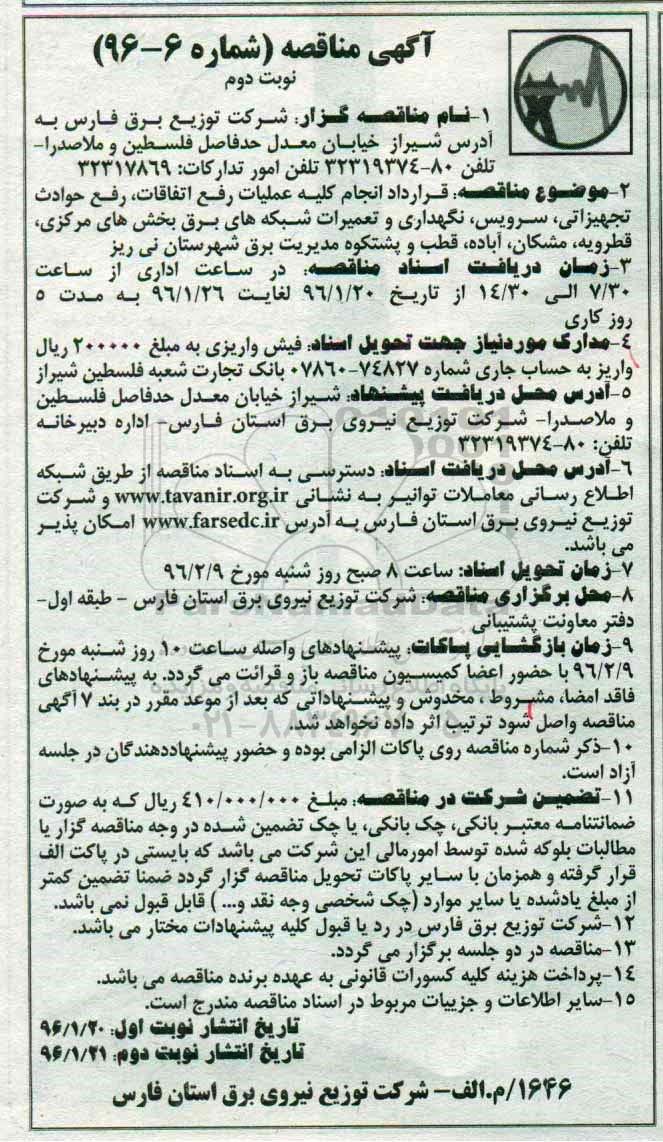 آگهی مناقصه (شماره ۶-۹۶)
نوبت دوم
۱-نام مناقصه گزار: شرکت توزیع برق فارس به
آدرس شیراز خیابان معدل حدفاصل فلسطین و ملاصدرا-
تلفن ۸۰-۳۲۳۱۹۳۷۴ تلفن امور تدارکات: ۳۲۳۱۷۸۶۹
۲-موضوع مناقصه: قرارداد انجام کلیه عملیات رفع اتفاقات، رفع حوادث
تجهیزاتی، سرویس، نگهداری و تعمیرات شبکه های برق بخش های مرکزی،
قطرویه، مشکان، آباده، قطب و پشتکوه مدیریت برق شهرستان نی ریز
۳-زمان دریافت اسناد مناقصه: در ساعت اداری از ساعت
۷/۳۰ الی ۱۴/۳۰ از تاریخ ۹۶/۱/۲۰ لغایت ۹۶/۱/۲۶ به مدت ۵
روز کاری
۴-مدارک موردنیاز جهت تحویل اسناد: فیش واریزی به مبلغ ۲۰۰۰۰۰ ریال
واریز به حساب جاری شماره ۷۴۸۲۷-۰۷۸۶۰ بانک تجارت شعبه فلسطین شیراز
۵-آدرس محل دریافت پیشنهاد: شیراز خیابان معدل حدفاصل فلسطین
و ملاصدرا- شرکت توزیع نیروی برق استان فارس- اداره دبیرخانه
تلفن: ۸۰-۳۲۳۱۹۳۷۴
۶-آدرس محل دریافت اسناد: دسترسی به اسناد مناقصه از طریق شبکه
اطلاع رسانی معاملات توانیر به نشانی www.tavanir.org.ir و شرکت
توزیع نیروی برق استان فارس به آدرس www.farsedc.ir امکان پذیر
می باشد.
۷-زمان تحویل اسناد: ساعت ۸ صبح روز شنبه مورخ ۹۶/۲/۹
۸-محل برگزاری مناقصه: شرکت توزیع نیروی برق استان فارس - طبقه اول-
دفتر معاونت پشتیبانی
۹-زمان بازگشایی پاکات: پیشنهادهای واصله ساعت ۱۰ روز شنبه مورخ
۹۶/۲/۹ با حضور اعضا کمیسیون مناقصه باز و قرائت می گردد. به پیشنهادهای
فاقد امضا، مشروط ، مخدوش و پیشنهاداتی که بعد از موعد مقرر در بند ۷ آگهی
مناقصه واصل شود ترتیب اثر داده نخواهد شد.
۱۰-ذکر شماره مناقصه روی پاکات الزامی بوده و حضور پیشنهاددهندگان در جلسه
آزاد است.
۱۱-تضمین شرکت در مناقصه: مبلغ ۴۱۰/۰۰۰/۰۰۰ ریال که به صورت
ضمانتنامه معتبر بانکی، چک بانکی، یا چک تضمین شده در وجه مناقصه گزار یا
مطالبات بلوکه شده توسط امورمالی این شرکت می باشد که بایستی در پاکت الف
قرار گرفته و همزمان با سایر پاکات تحویل مناقصه گزار گردد ضمنا تضمین کمتر
از مبلغ یادشده یا سایر موارد (چک شخصی وجه نقد و... ) قابل قبول نمی باشد.
۱۲-شرکت توزیع برق فارس در رد یا قبول کلیه پیشنهادات مختار می باشد.
۱۳-مناقصه در دو جلسه برگزار می گردد.
۱۴-پرداخت هزینه کلیه کسورات قانونی به عهده برنده مناقصه می باشد.
۱۵-سایر اطلاعات و جزییات مربوط در اسناد مناقصه مندرج است.
تاریخ انتشار نوبت اول: ۹۶/۱/۲۰
تاریخ انتشار نوبت دوم: ۹۶/۱/۲۱
۱۶۴۶/م.الف- شرکت توزیع نیروی برق استان فارس